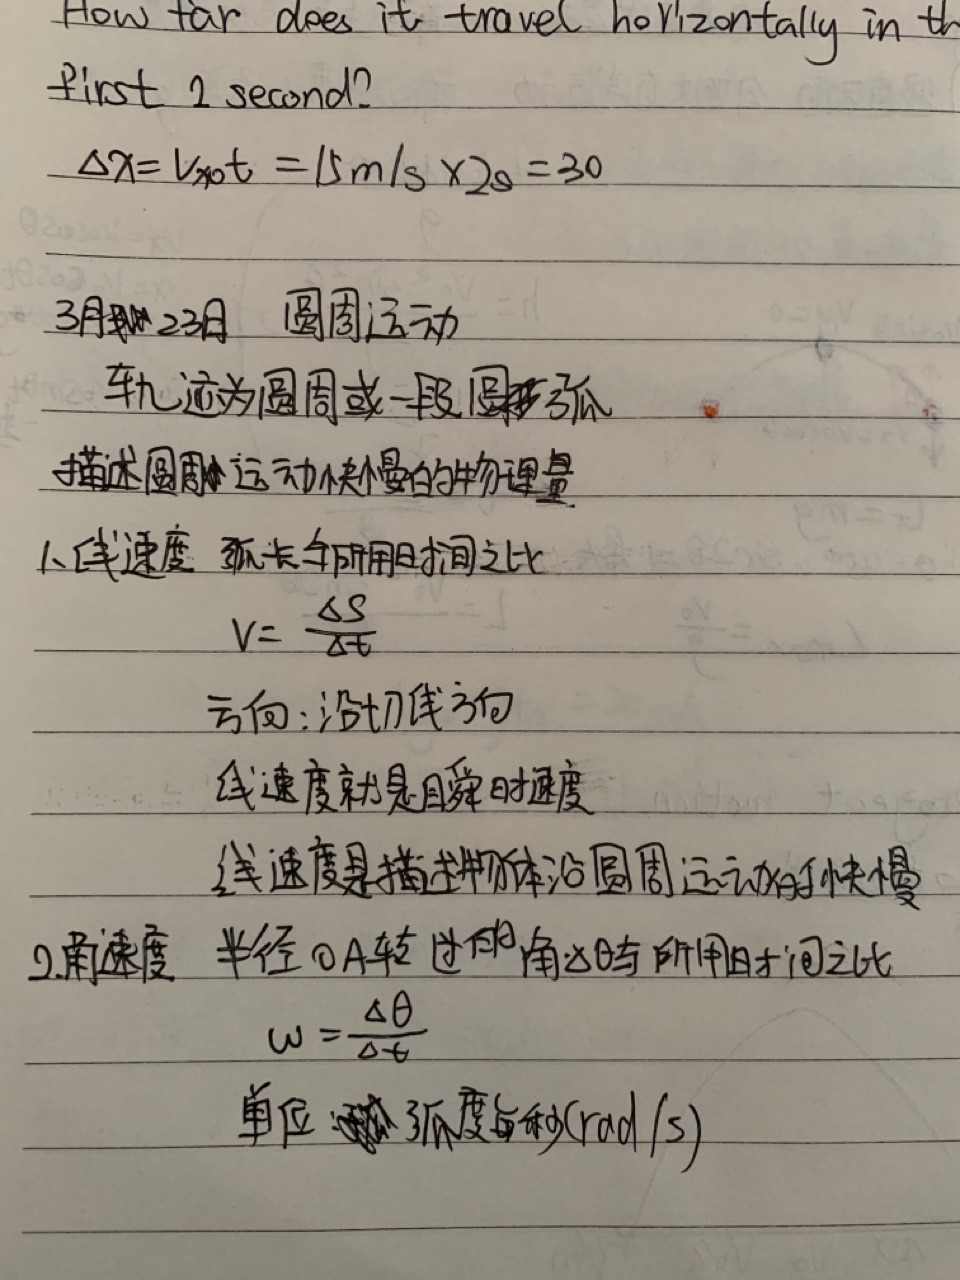 How far does it travel horizontally in th
first 2 second?
Δx = Vx0t = 15m/s × 2s = 30
3月 23日 圆周运动
轨迹为圆周或一段圆弧
描述圆周运动快慢的物理量
1、线速度 弧长与所用时间之比
V = ΔS/Δt
方向:沿切线方向
线速度就是瞬时速度
线速度是描述物体沿圆周运动的快慢
2.角速度 半径OA转过的角Δθ与所用时间之比
ω = Δθ/Δt
单位 弧度每秒(rad/s)